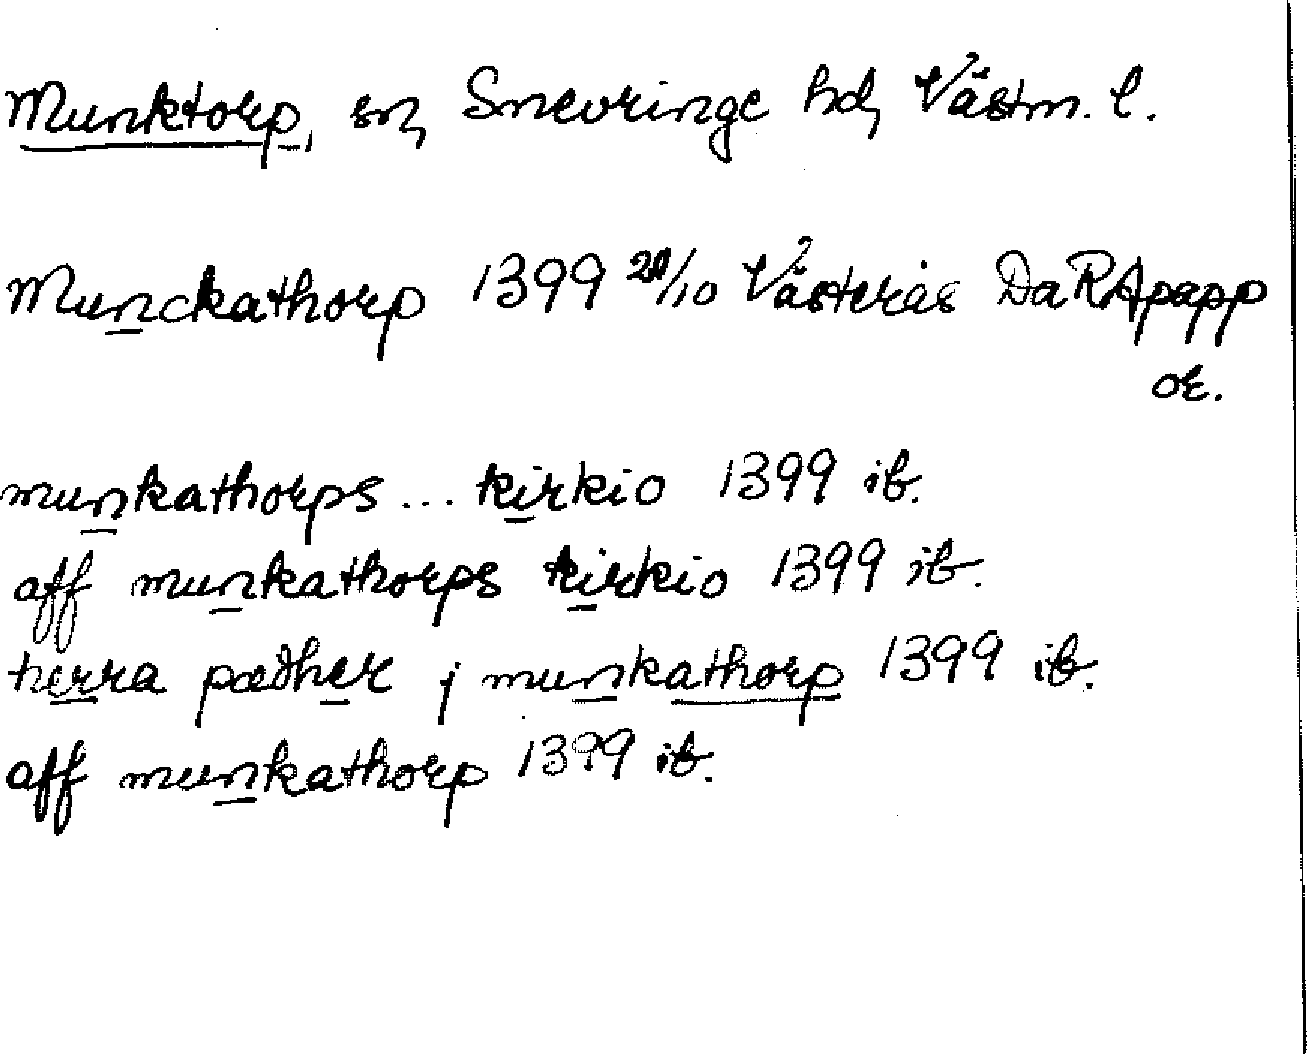 Munktorp, sn, Snevringe hd, Västm. l.
Munckathorp 1399 20/10 Västerås DaRApapp
or.
munkathorps ... kirkio 1399 ib.
aff munkathorps kirkio 1399 ib.
herra pædher j munkathorp 1399 ib.
aff munkathorp 1399 ib.